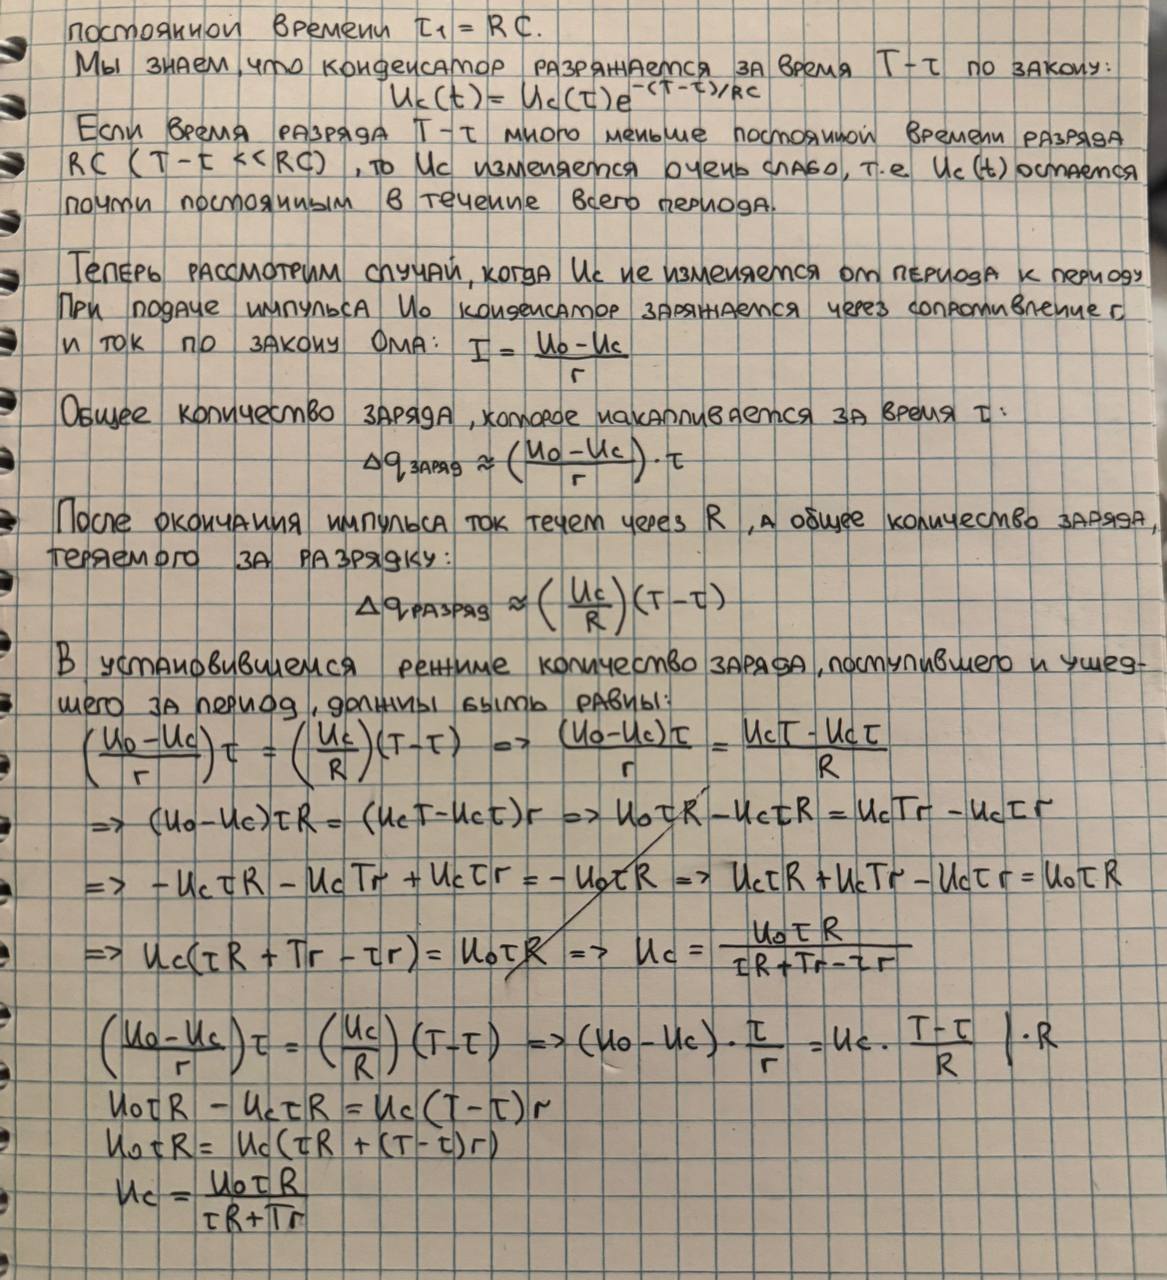 постоянной времени τ₁ = RC.
Мы знаем, что конденсатор разряжается за время T-τ по закону:
Uc(t) = Uc(τ)e^{-(T-τ)/RC}
Если время разряда T-τ много меньше постоянной времени разряда
RC (T-τ << RC), то Uc изменяется очень слабо, т.е. Uc(t) остается
почти постоянным в течение всего периода.
Теперь рассмотрим случай, когда Uc не изменяется от периода к периоду
При подаче импульса U₀ конденсатор заряжается через сопротивление r
и ток по закону Ома: I = (U₀-Uc)/r
Общее количество заряда, которое накапливается за время τ:
Δq заряд ≈ ((U₀-Uc)/r)·τ
После окончания импульса ток течет через R, а общее количество заряда,
теряемого за разрядку:
Δq разряд ≈ (Uc/R)(T-τ)
В установившемся режиме количество заряда, поступившего и ушед-
шего за период, должны быть равны:
((U₀-Uc)/r)τ = (Uc/R)(T-τ) => (U₀-Uc)τ/r = (UcT-Ucτ)/R
=> (U₀-Uc)τR = (UcT-Ucτ)r => U₀τR - UcτR = UcTr - Ucτr
=> -UcτR - UcTr + Ucτr = -U₀τR => UcτR + UcTr - Ucτr = U₀τR
=> Uc(τR + Tr - τr) = U₀τR => Uc = U₀τR/(τR+Tr-τr)
((U₀-Uc)/r)τ = (Uc/R)(T-τ) => (U₀-Uc)·τ/r = Uc·(T-τ)/R |·R
U₀τR - UcτR = Uc(T-τ)r
U₀τR = Uc(τR + (T-τ)r)
Uc = U₀τR/(τR+Tr)